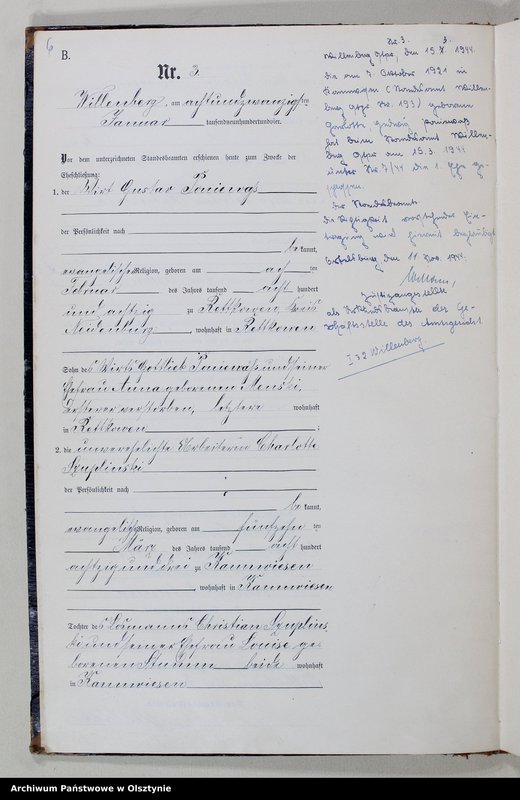 6
B.
Nr. 3.
Willenberg, am achtundzwanzigsten
Januar tausendneunhundertundvier.
Vor dem unterzeichneten Standesbeamten erschienen heute zum Zwecke der
Eheschließung:
1. der Wirt Gustav
der Persönlichkeit nach
be kannt,
evangelischer Religion, geboren am ten
Februar des Jahres tausend acht hundert
und achtzig zu Rettkowen, Kreis
Neidenburg, wohnhaft in Rettkowen
Sohn des Wirts Gottlieb und seiner
Ehefrau Anna geborenen
Ersterer verstorben, letztere wohnhaft
in Rettkowen;
2. die unverehelichte Arbeiterin Charlotte
Szuplinski
der Persönlichkeit nach
be kannt,
evangelischer Religion, geboren am fünfzehnten
März des Jahres tausend acht hundert
achtzig und drei zu Kannwiesen
, wohnhaft in Kannwiesen
Tochter des Losmanns Christian Szuplins-
ki und seiner Ehefrau Louise ge-
borenen Stumm beide wohnhaft
in Kannwiesen
Nr. 3. 3.
Willenberg Ostpr., den 15. 1944.
Die am 7. Oktober 1921 in
Kannwiesen (Standesamt Willen-
berg Ostpr. Nr. 193) geborene
hat beim Standesamt Willen-
berg Ostpr. am 15.3.1944
unter Nr. 7/44 die 1. Ehe ge-
schlossen.
Der Standesbeamte
Die Richtigkeit vorstehender Ein-
tragung wird hiermit beglaubigt
Ortelsburg, den 11. Nov. 1944.
Justizangestellte
als Urkundsbeamter der Ge-
schäftsstelle des Amtsgerichts
I 32 Willenberg
Archiwum Państwowe w Olsztynie